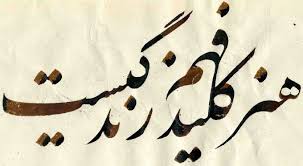 هنر کلید فهم زندگیست